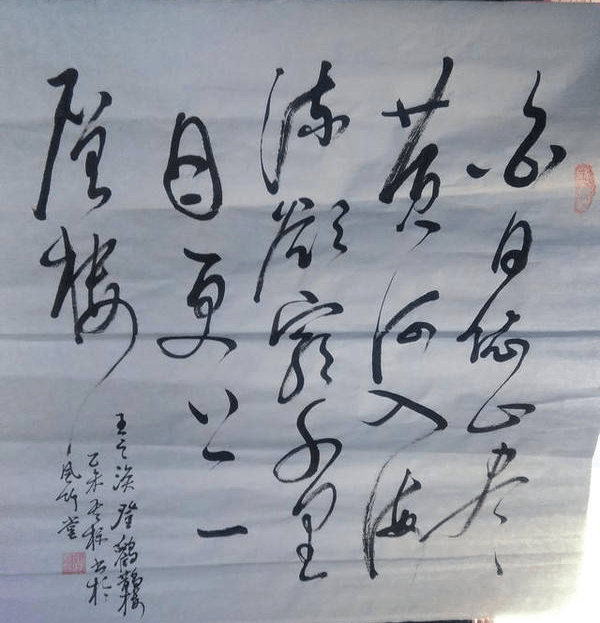 白日依山尽
黄河入海
流欲穷千里
目更上一
层楼
王之涣登鹳鹊楼
乙未年秋书于
风竹堂